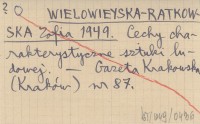 2 O WIELOWIEYSKA-RATKOW-
SKA Zofia 1949. Cechy cha-
rakterystyczne sztuki lu-
dowej. — Gazeta Krakowska
(Kraków) nr 87.